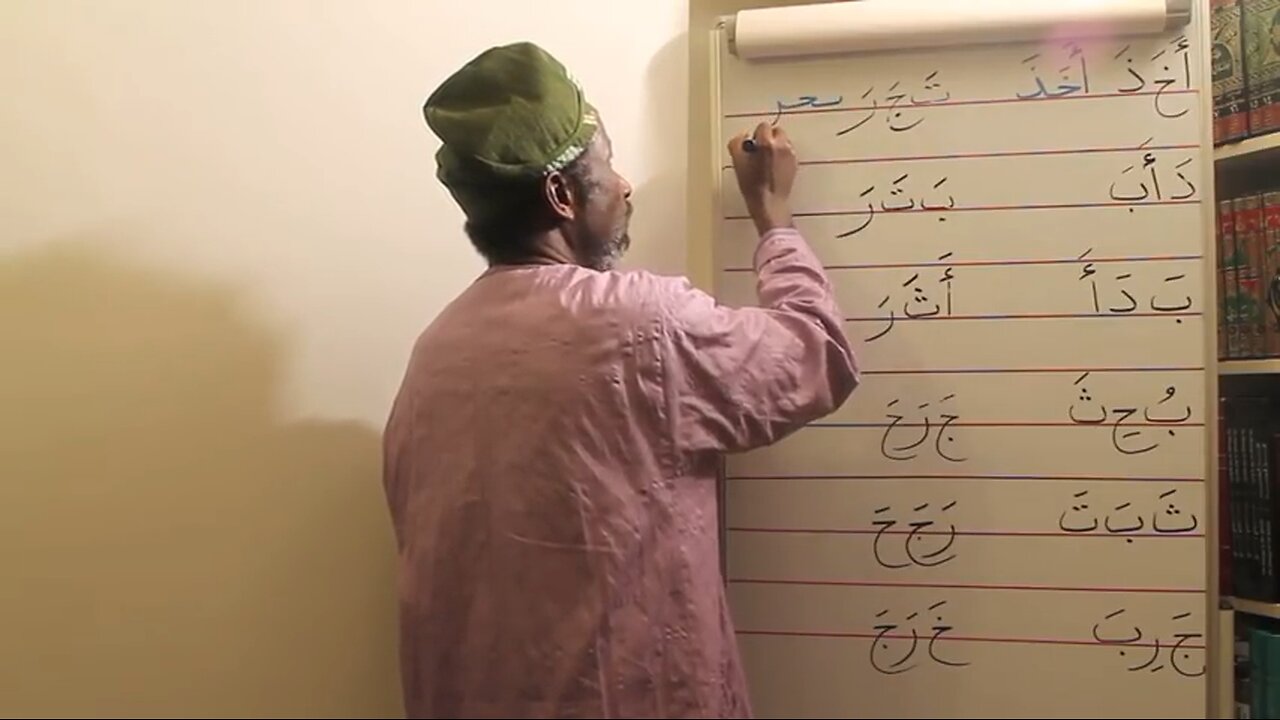 أَ خَ ذَ أَخَذَ تَ جَ رَ
دَ أَ بَ بَ تَ رَ
بَ دَ أَ أَ ثَ رَ
بُ حِ ثَ جَ رَ حَ
ثَ بَ تَ رَ جَ حَ
جَ رِ بَ خَ رَ جَ